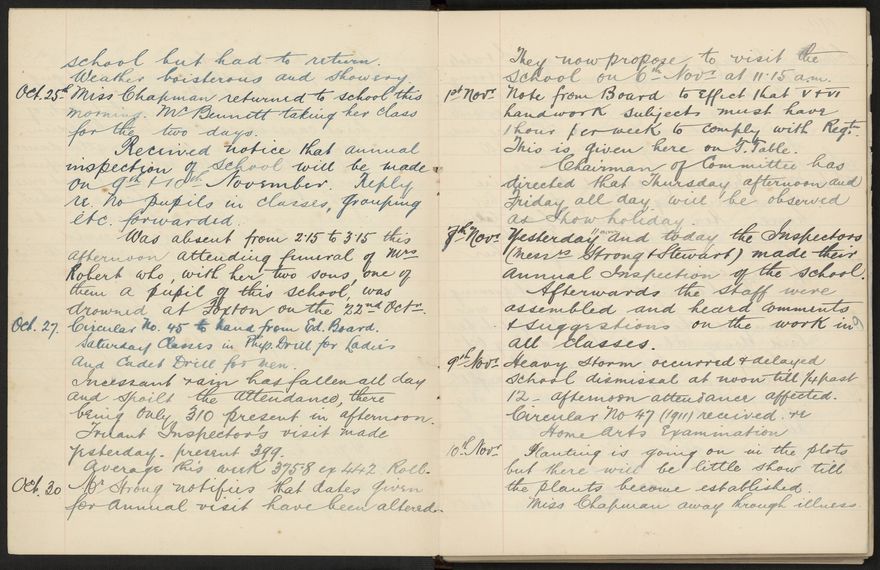 school but had to return.
Weather boisterous and showery.
Oct. 25th Miss Chapman returned to school this
morning. Mr Bennett taking her class
for the two days.
Received notice that annual
inspection of school will be made
on 9th & 10th November. Reply
re. no pupils in classes, grouping
etc. forwarded.
Was absent from 2.15 to 3.15 this
afternoon attending funeral of Mrs
Robert who, with her two sons, one of
them a pupil of this school, was
drowned at Foxton on the 22nd Octr.
Oct. 27. Circular No. 45 to hand from Ed. Board.
Saturday Classes in Phys. Drill for Ladies
and Cadet Drill for men.
Incessant rain has fallen all day
and spoilt the attendance, there
being only 310 present in afternoon.
Truant Inspector's visit made
yesterday - present 399.
Average this week 375.8 ex 442 Roll.
Oct. 30 Mr Strong notifies that dates given
for annual visit have been altered.
They now propose to visit the
school on 6th Novr at 11.15 a.m.
1st Novr Note from Board to effect that V & VI
handwork subjects must have
1 hour per week to comply with Regt.
This is given here on T. Table.
Chairman of Committee has
directed that Thursday afternoon and
Friday all day will be observed
as Show holiday.
7th Novr Yesterday and today the Inspectors
(Messrs Strong & Stewart) made their
Annual Inspection of the school.
Afterwards the staff were
assembled and heard comments
& suggestions on the work in
all classes.
9th Novr Heavy storm occurred & delayed
school dismissal at noon till 1/4 past
12 - afternoon attendance affected.
Circular No 47 (1911) received. re
Home Arts Examination
10th Novr Planting is going on in the plots
but there will be little show till
the plants become established.
Miss Chapman away through illness.